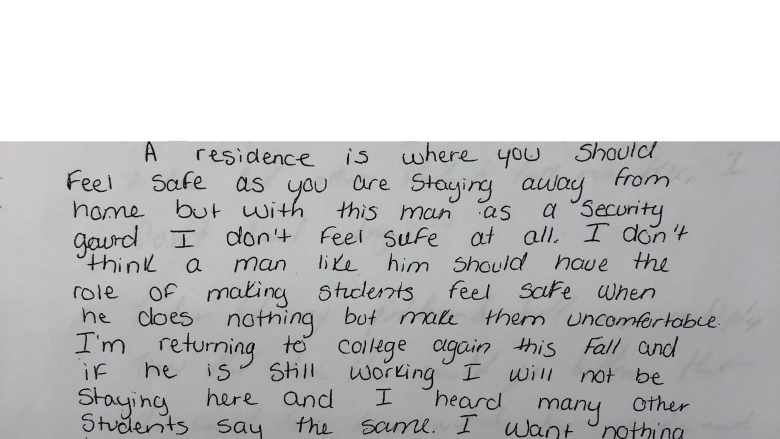 A residence is where you should
Feel safe as you are staying away from
home but with this man as a security
gaurd I don't feel safe at all. I don't
think a man like him should have the
role of making students feel safe when
he does nothing but make them uncomfortable.
I'm returning to college again this Fall and
if he is still working I will not be
staying here and I heard many other
students say the same. I want nothing